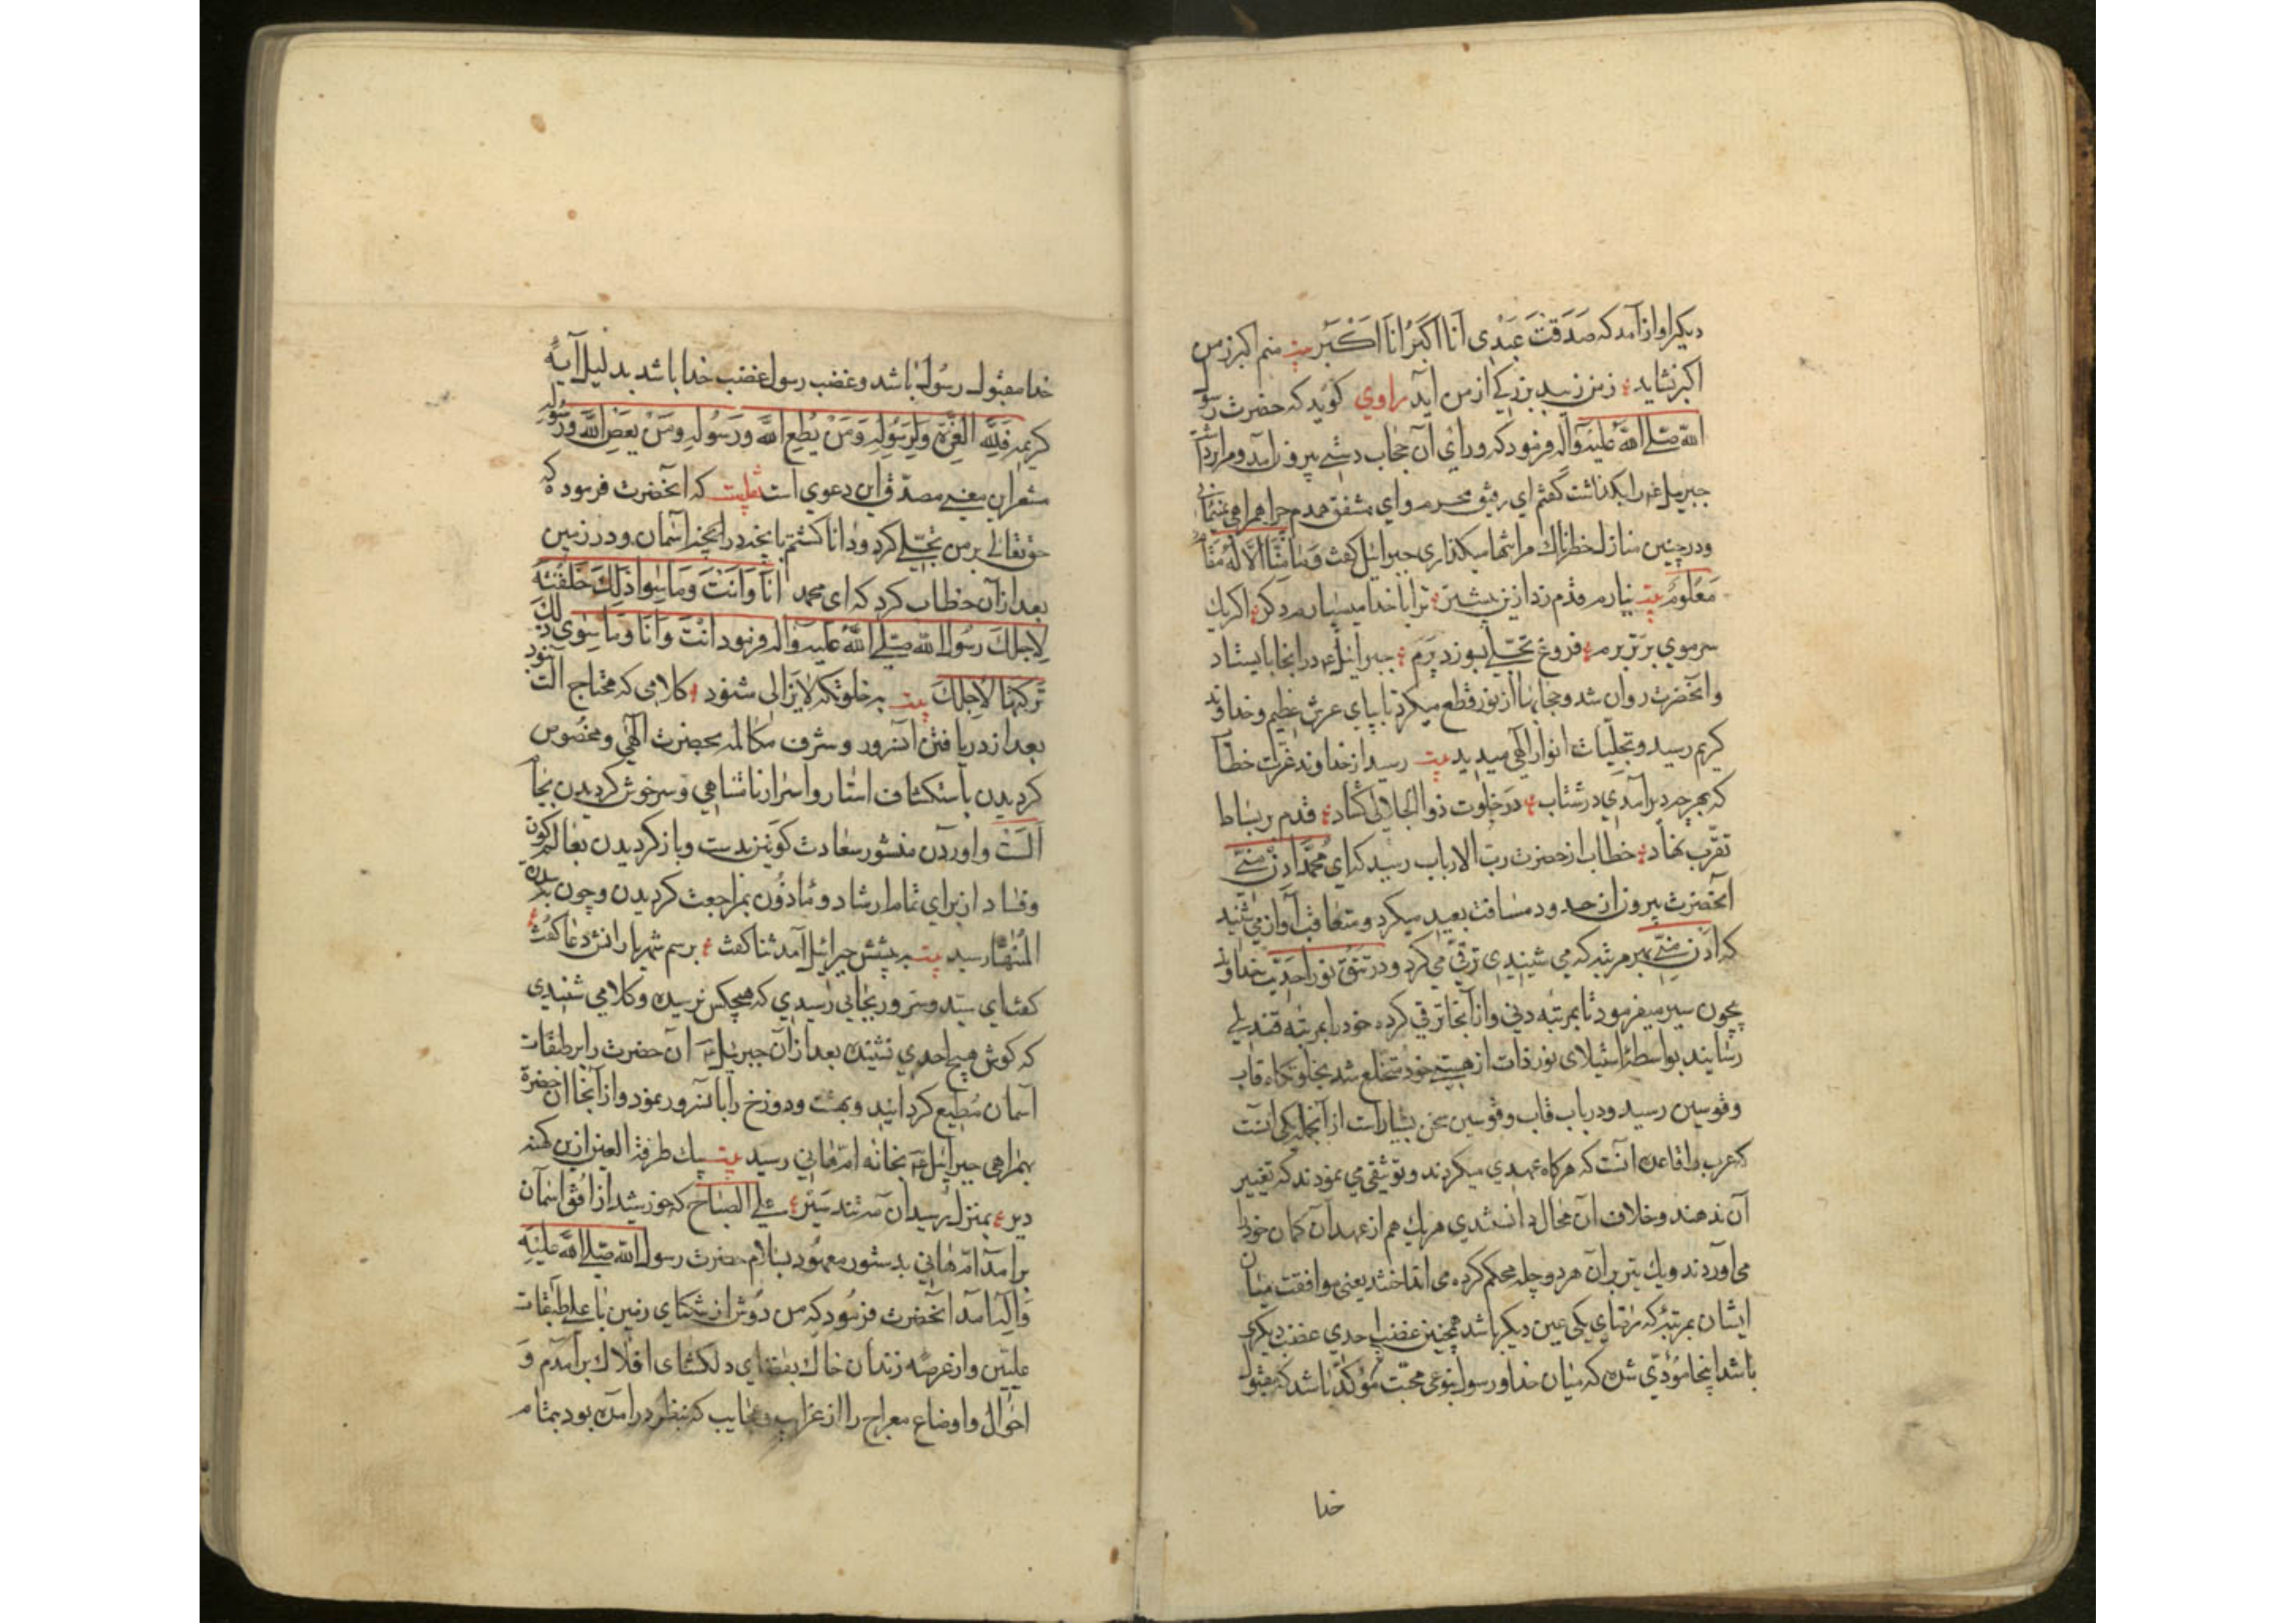 دیکر اواز آمد که صَدَقتَ عَبْدِی اَنَا اَکبَرُ اَنَا اَکْبَر بیت منم اکبر ز من
اکبر نشاید ز من زیبد بزرکی از من آید راوی کوید که حضرت رسول
الله صلی الله علیه وآله فرمود که ورای آن حجاب دستی بیرون آمد و مرا برداشت
جبریل را بکذاشت گفتم ای رفیق محرم و ای مشفق همدم چرا همراهی نمینمائی
و در چنین منازل خطرناک مرا تنها میکذاری جبرائیل کفت وَمَا مِنَّا اِلّا لَهُ مَقَامٌ
مَعْلُومٌ بیت نیارم قدم زد ازین بیشتر ترا با خدا میسپارم دکر اکر یک
سر موی برتر پرم فروغ تجلی بسوزد پرم جبرائیل در انجا بایستاد
و انحضرت روان شد و حجابها از نور قطع میکرد تا بپای عرش عظیم و خداوند
کریم رسید و تجلّیات انوار الٓهی میدید بیت رسید از خداوند عزت خطاب
که در خلوت ذوالجلالی کشاد قدم بر بساط
تقرّب نهاد خطاب از حضرت ربّ الارباب رسید که ای محمّد اُدنُ مِنّی
انحضرت بیرون از حدود مسافت بعید میکرد و متعاقب آواز می شنید
که ادن منّی بهر مرتبه که می شنیدی ترقّی می کرد و در تتق نور احدیت خداوند
بیچون سیر میفرمود تا بمرتبه دنی و از آنجا ترقی کرده خود را بمرتبه فتدلی
رسانید بواسطهٔ استیلای نور ذات از هستی خود منخلع شد بخلوتکاه قاب
وقوسین رسید و در باب قاب وقوسین سخن بسیار است از آنجمله یکی آنست
که عرب را قاعده انست که هرکاه عهدی میکردند و توثیقی می نمودند که تغییر
آن ندهند و خلاف آن محال دانستندی هر یک هم از عهد آن کمان خود را
می آوردند و یک تیر بر آن هر دو چله محکم کرده می انداختند یعنی موافقت میان
ایشان بمرتبهٔ که رضای یکی عین دیکر باشد همچنین غضب احدی غضب دیکری
باشد اینجا مؤدّی شده که میان خدا و رسول بنوعی محبت مؤکّد باشد که مقبول
خدا
خدا مقبول رسول باشد و غضب رسول غضب خدا باشد بدلیل آیهٔ
کریمه فَلِلّٰهِ العِزَّةُ وَلِرَسُولِهِ وَمَنْ یُطِعِ اللّٰهَ وَرَسُولَهُ وَمَنْ یَعصِ اللّٰهَ وَرَسُولَهُ
مشعر این معنی مصدّق این دعوی است نقلیت که انحضرت فرمود که
حقتعالی بر من تجلّی کرد و دانا کشتم بانچه در انچه در آسمان و در زمین
بعد از آن خطاب کرد که ای محمد اَنَا وَاَنتَ وَمَا سِوا ذٰلِکَ خَلَقْتُهُ
لِاَجلِکَ رسول الله صلی الله علیه وآله فرمود اَنتَ وَاَنَا وَمَا سِوی ذٰلِکَ
تَرَکتُهَا لِاَجلِکَ بیت به خلوتکه لایزالی شنود کلامی که محتاج الت نبود
بعد از دریافتن آنسرور و شرف مکالمه بحضرت الٓهی و مخصوص
کردیدن باستکشاف استار و اسرار نامتناهی و سرخوش کردیدن بجام
اَلَستُ و اوردن منشور سعادت کونین بدست و باز کردیدن بعالم کون
و فساد از برای تمام ارشاد و ماذون بمراجعت کردیدن و چون بسدرة
المُنتَهٰا رسید بیت به پیشش جبرائیل آمد ثنا کفت برسم شهریارانش دعا کفت
کفت ای سیّد و سرور بجائی رسیدی که هیچکس نرسیده و کلامی شنیدی
که کوش هیچ احدی نشنیده بعد از آن جبریل آن حضرت را بر طبقات
آسمان مُطیع کردانید و بهشت و دوزخ را بآنسرور نمود و از آنجا آن حضرة
بهمراهی جبرائیل بخانه امّ هانی رسید بیت بیک طرفة العین ازین کهنه
دیر بمنزل رسید آن مه تند سیر علی الصباح که خورشید از افق اسمان
بر امد امّ هانی بدستور معهود بسلام حضرت رسول الله صلی الله علیهِ
وَآلِه آمد انحضرت فرمود که من دُوش از تنکنای زمین با علی طبقات
علیّین و از عرصه زندان خاک بفضای دلکشای افلاک برآمدم وَ
احوال و اوضاع معراج را از غرایب و عجایب که بنظر درآمده بود بتمام